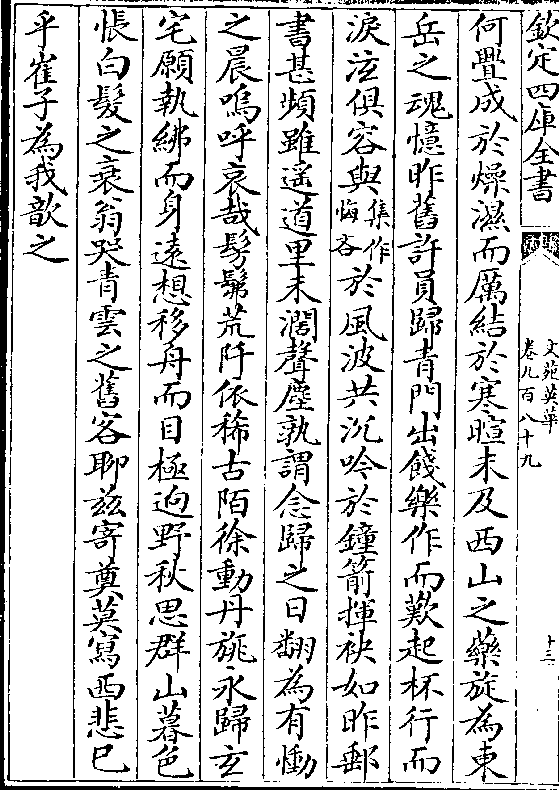 欽定四庫全書
文苑英華
卷九百八十九
十三
何疊成於燥濕而厲結於寒暄未及西山之藥旋為東
岳之魂憶昨舊許員歸青門出餞樂作而歎起杯行而
淚泫俱容與集作悔吝於風波共沉吟於鐘箭揮袂如昨郵
書甚頻雖遥道里未濶聲塵孰謂念歸之日翻為有慟
之晨嗚呼哀哉髣髴荒阡依稀古陌徐動丹旐永歸玄
宅願執紼而身遠想移舟而目極逈野秋思群山暮色
悵白髮之衰翁哭青雲之舊客聊兹寄奠莫寫西悲已
乎崔子為我歆之